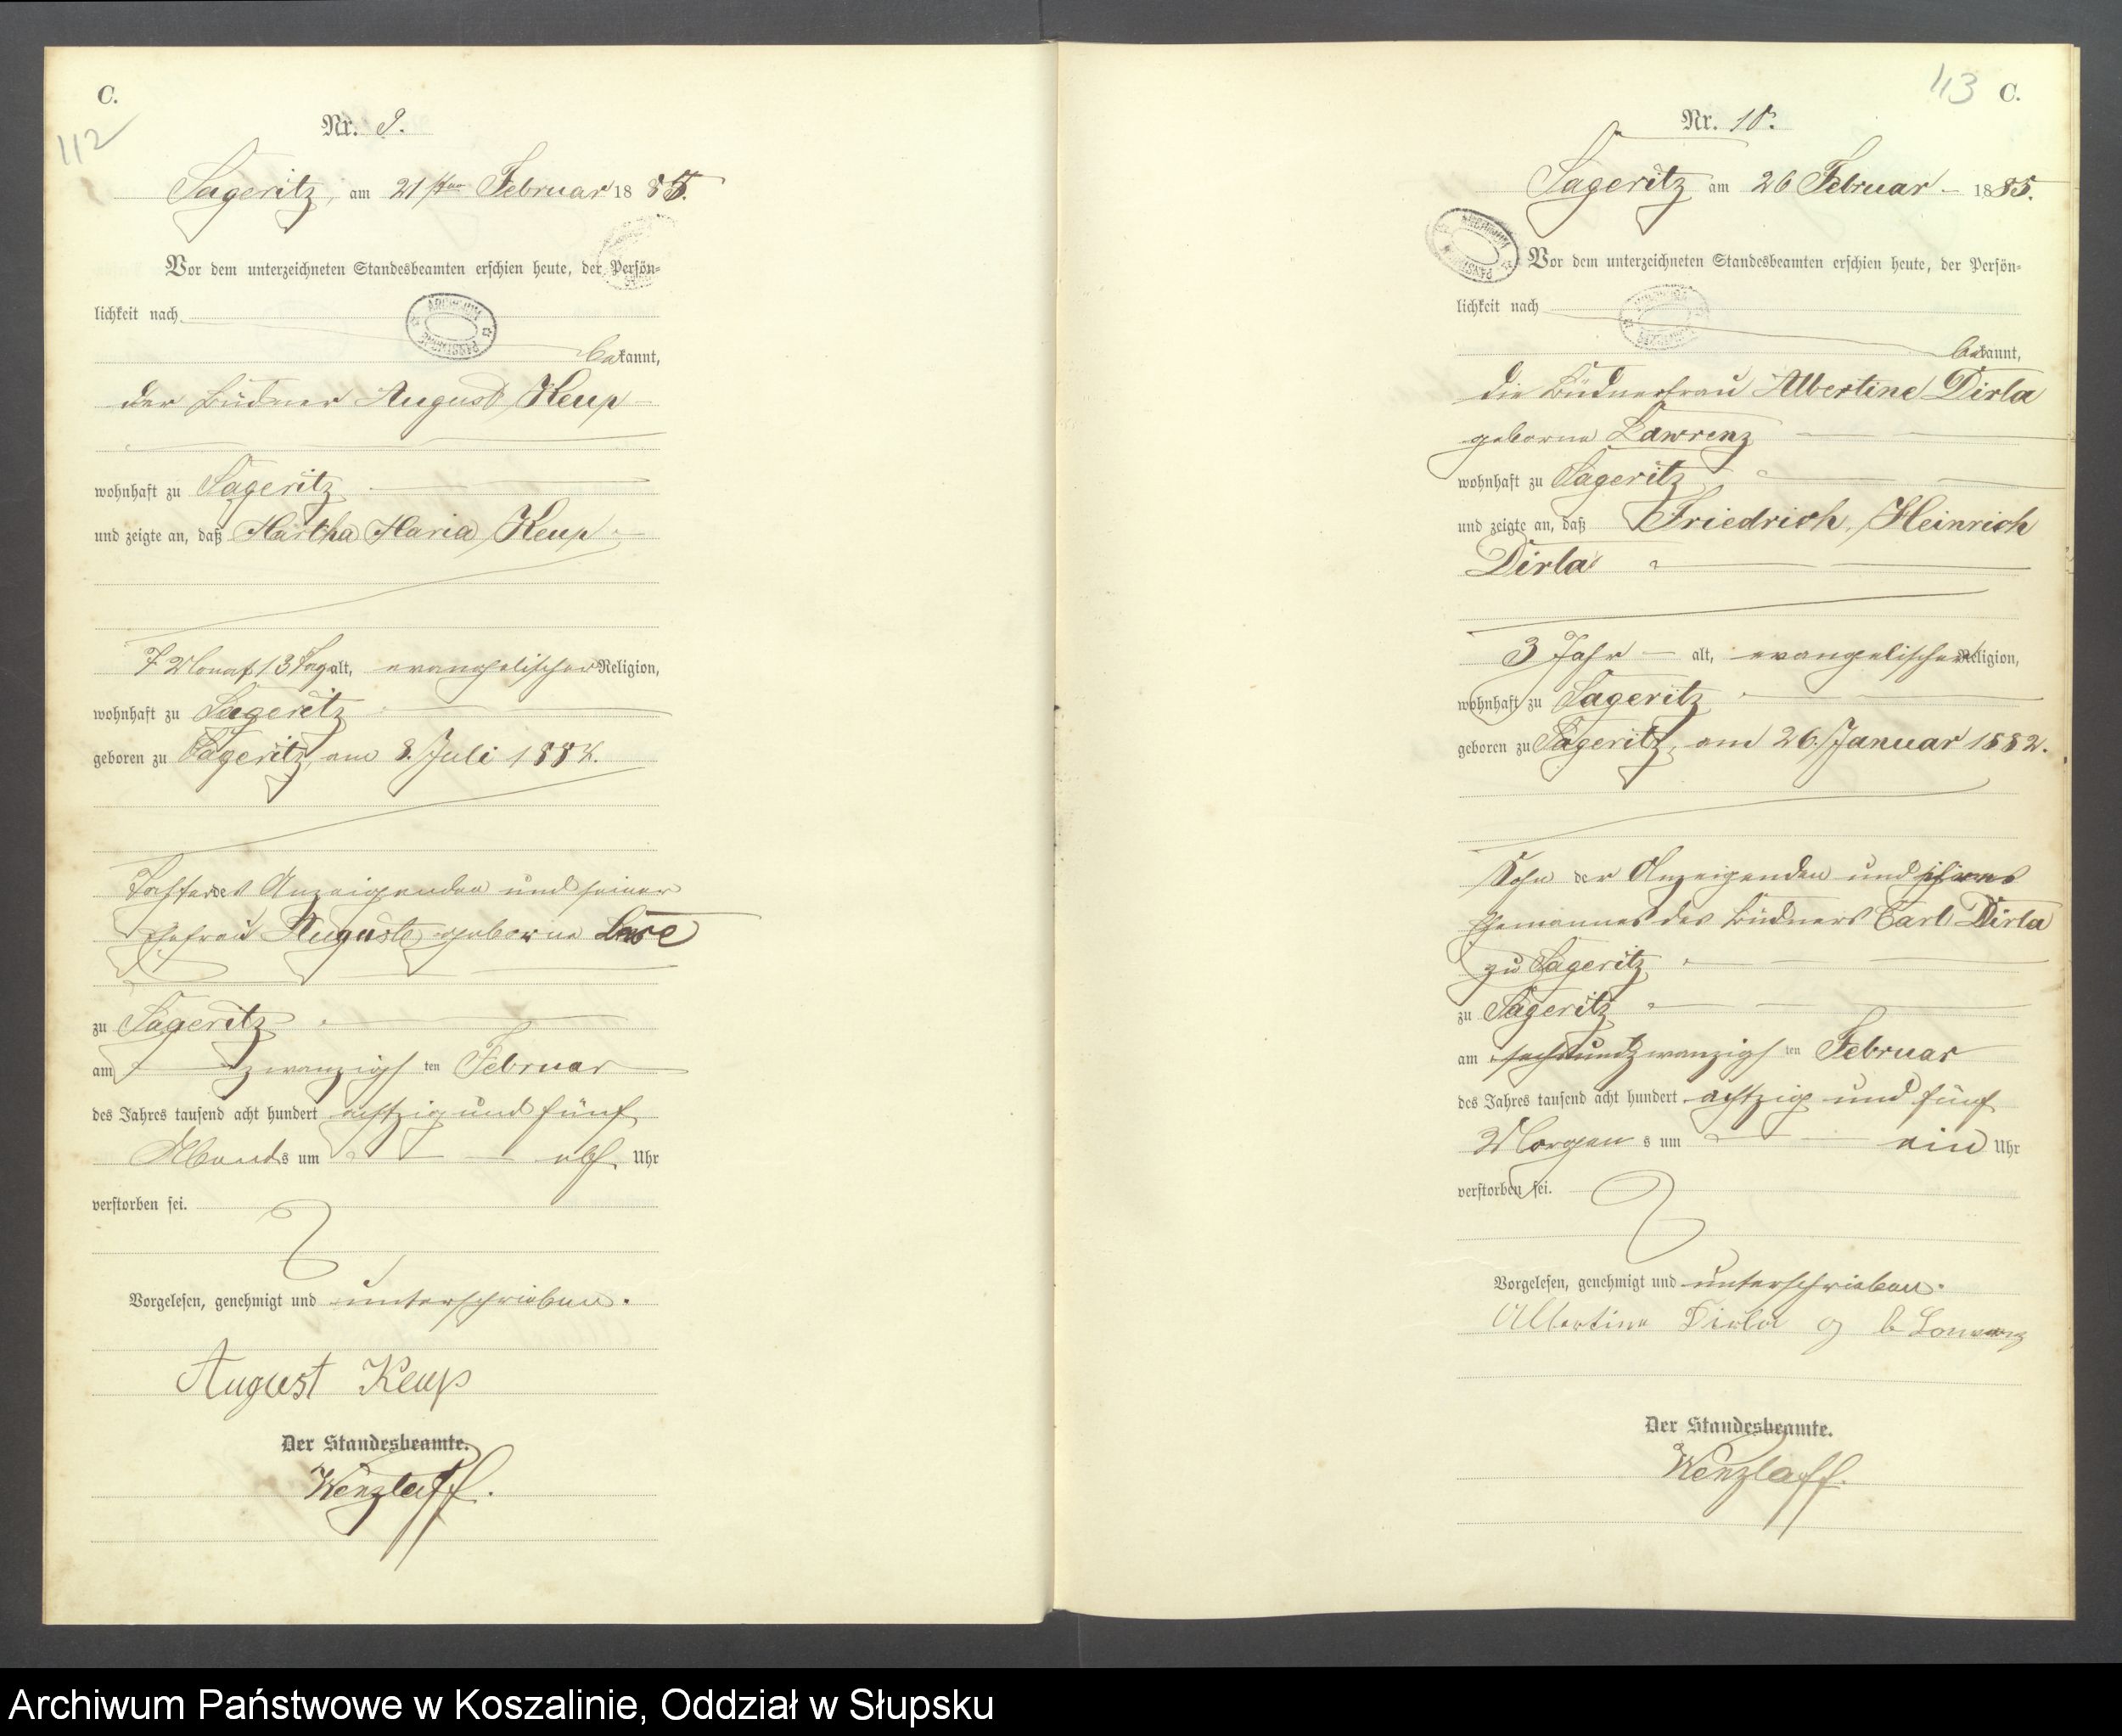 C.
112
Nr. 9.
Sageritz, am 21sten Februar 1885.
Vor dem unterzeichneten Standesbeamten erschien heute, der Persön-
lichkeit nach
bekannt,
der Büdner August Keup
wohnhaft zu Sageritz
und zeigte an, daß Martha Maria Keup
7 Monat 13 Tag alt, evangelischer Religion,
wohnhaft zu Sageritz
geboren zu Sageritz, am 8. Juli 1884.
Tochter des Anzeigenden und seiner
Ehefrau Auguste geborne
zu Sageritz
am zwanzigsten Februar
des Jahres tausend acht hundert achtzig und fünf
Abends um elf Uhr
verstorben sei.
Vorgelesen, genehmigt und unterschrieben.
August Keup
Der Standesbeamte.
Wenzlaff.
113 C.
Nr. 10.
Sageritz am 26 Februar 1885.
Vor dem unterzeichneten Standesbeamten erschien heute, der Persön-
lichkeit nach
bekannt,
die Büdnerfrau Albertine Dirla
geborne Lawrenz
wohnhaft zu Sageritz
und zeigte an, daß Friedrich, Heinrich
Dirla
3 Jahr alt, evangelischer Religion,
wohnhaft zu Sageritz
geboren zu Sageritz, am 26. Januar 1882.
Sohn der Anzeigenden und ihres
Ehemannes des Büdners Carl Dirla
zu Sageritz
zu Sageritz
am sechsundzwanzigsten Februar
des Jahres tausend acht hundert achtzig und fünf
Morgens um ein Uhr
verstorben sei.
Vorgelesen, genehmigt und unterschrieben.
Albertine Dirla g b
Der Standesbeamte.
Wenzlaff.
Archiwum Państwowe w Koszalinie, Oddział w Słupsku